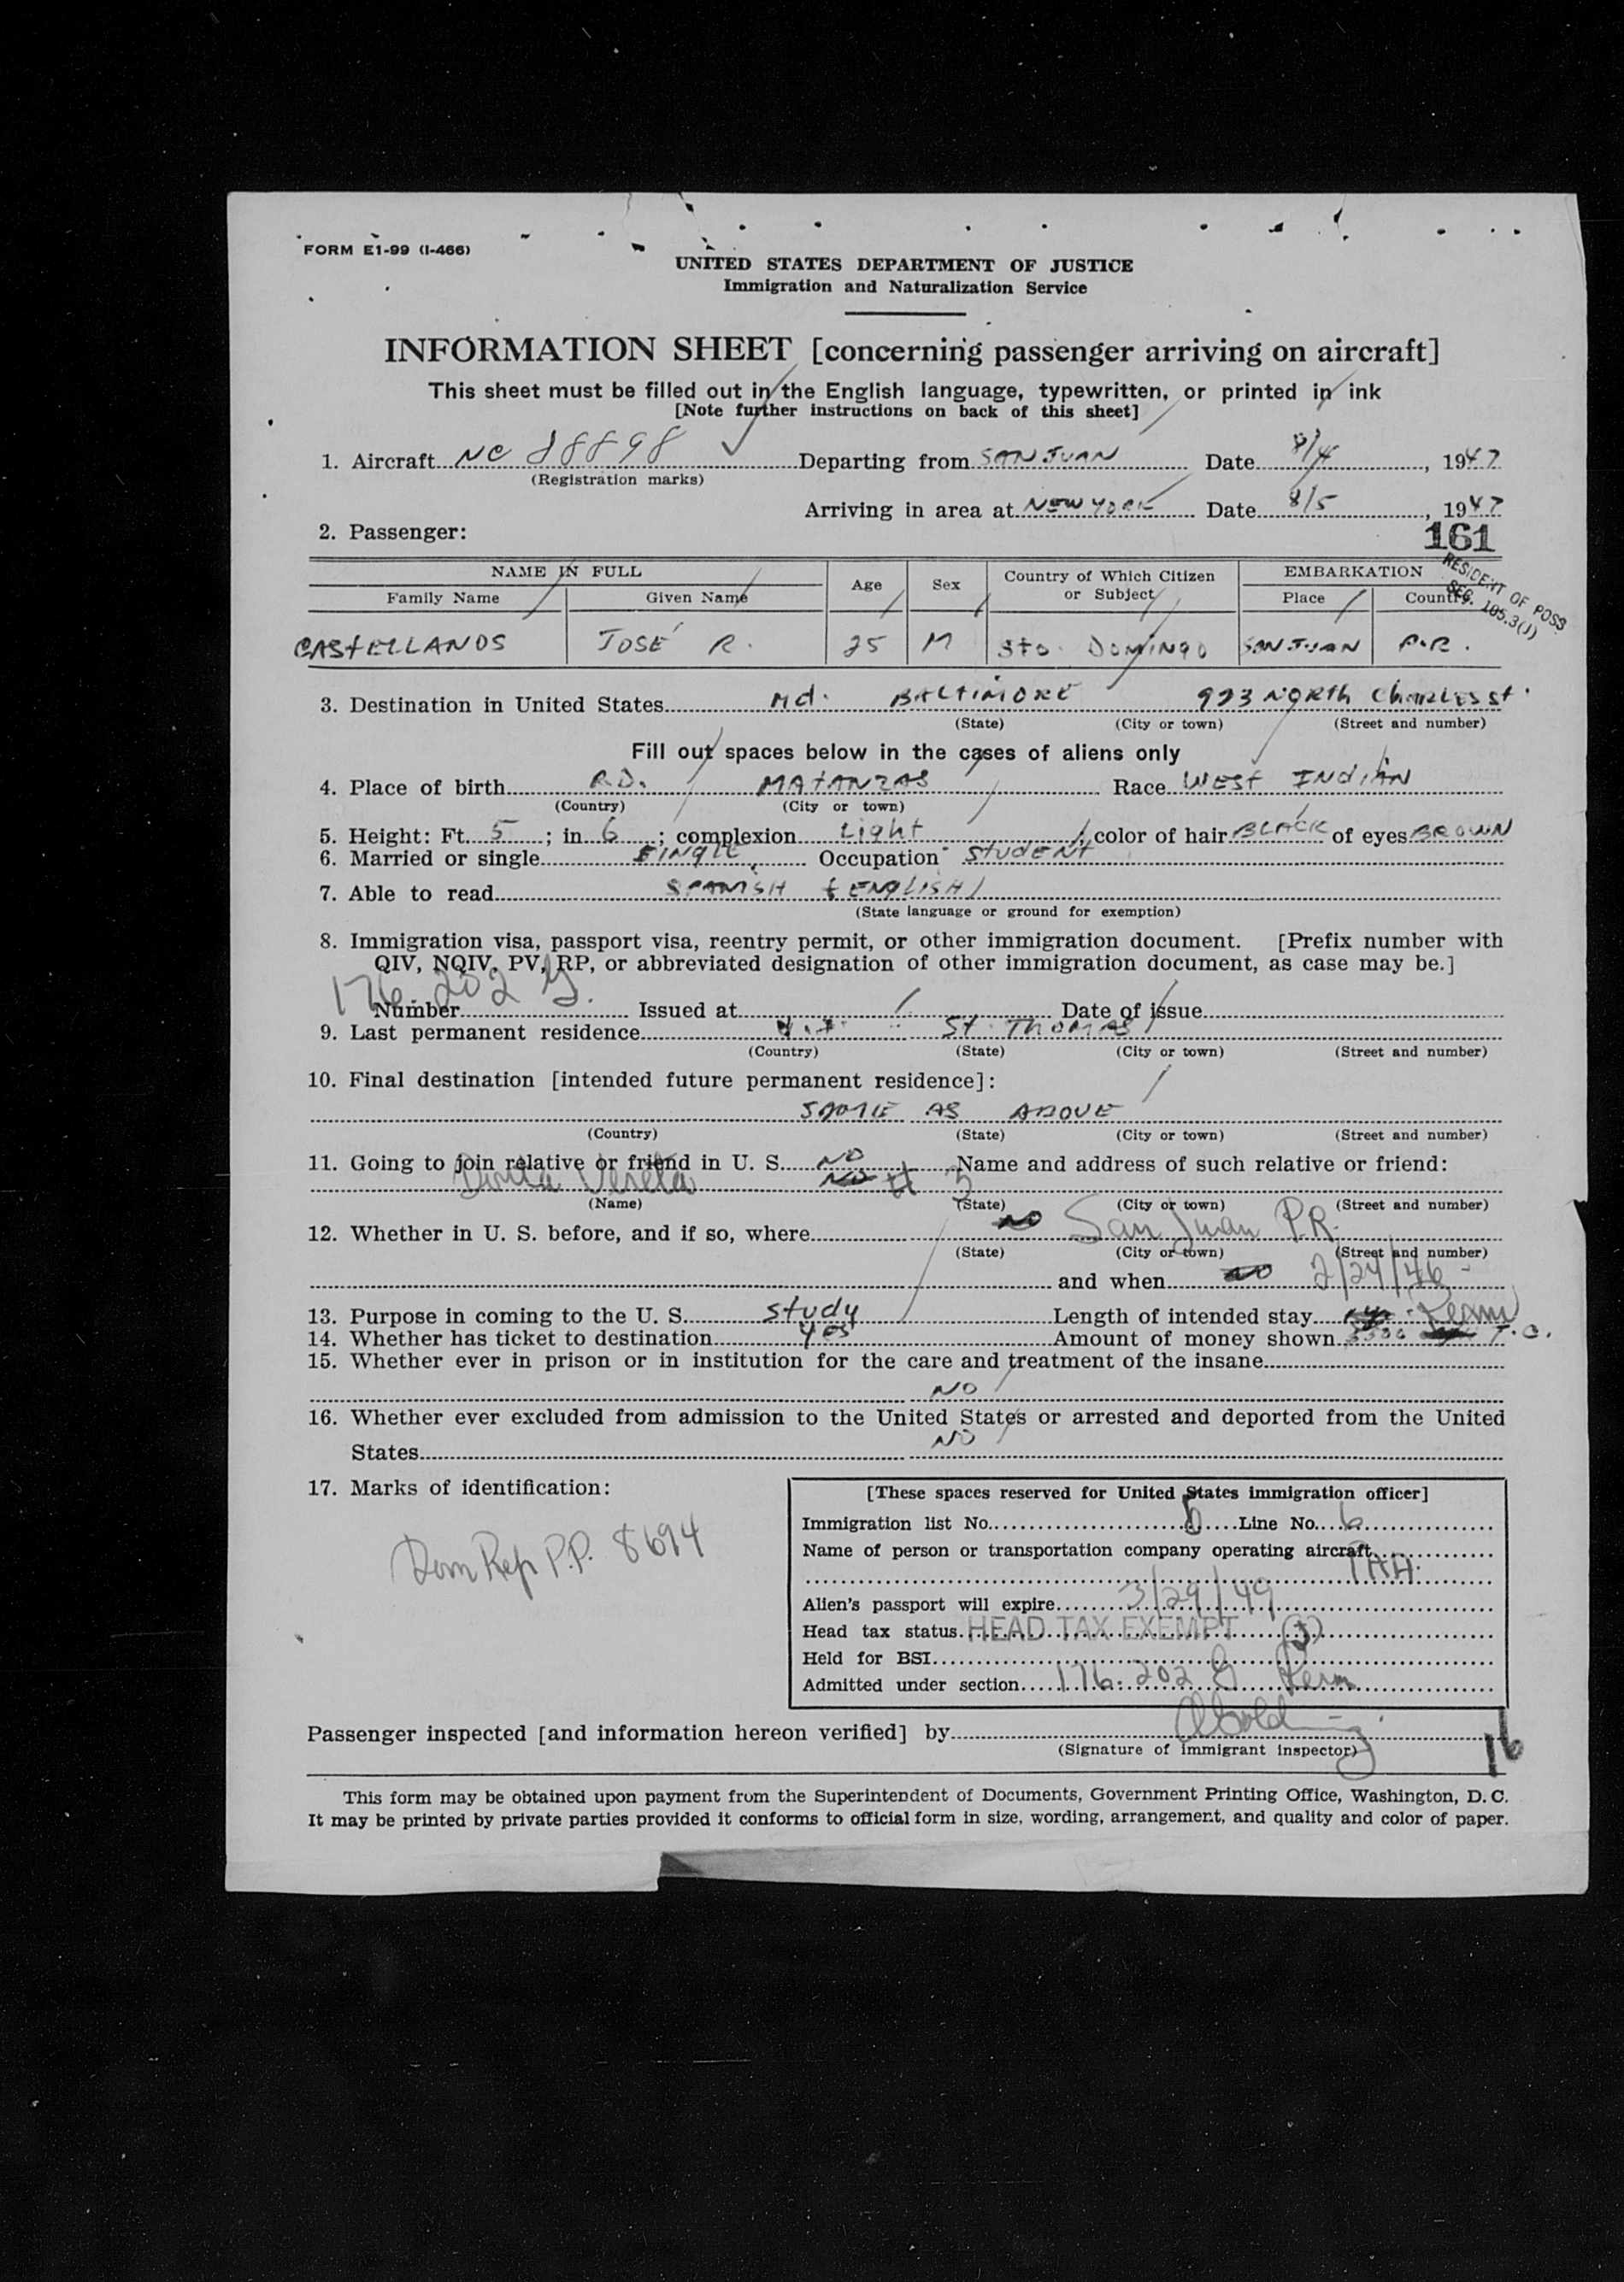 FORM E1-99 (I-466)
UNITED STATES DEPARTMENT OF JUSTICE
Immigration and Naturalization Service
INFORMATION SHEET [concerning passenger arriving on aircraft]
This sheet must be filled out in the English language, typewritten, or printed in ink
[Note further instructions on back of this sheet]
1. Aircraft NC 88898 Departing from SAN JUAN Date 8/4, 1947
(Registration marks)
Arriving in area at NEW YORK Date 8/5, 1947
2. Passenger: 161
RESIDENT OF POSS
SEC. 105.3(J)
NAME IN FULL Age Sex Country of Which Citizen or Subject EMBARKATION
Family Name Given Name Place Country
CASTELLANOS JOSÉ R. 25 M Sto. DOMINGO SAN JUAN P.R.
3. Destination in United States Md. BALTIMORE 923 NORTH CHARLES St.
(State) (City or town) (Street and number)
Fill out spaces below in the cases of aliens only
4. Place of birth R.D. MATANZAS Race WEST INDIAN
(Country) (City or town)
5. Height: Ft. 5; in. 6; complexion Light, color of hair BLACK of eyes BROWN
6. Married or single SINGLE Occupation STUDENT
7. Able to read SPANISH & ENGLISH
(State language or ground for exemption)
8. Immigration visa, passport visa, reentry permit, or other immigration document. [Prefix number with
QIV, NQIV, PV, RP, or abbreviated designation of other immigration document, as case may be.]
176.202
Number Issued at Date of issue
9. Last permanent residence V.I. St. THOMAS
(Country) (State) (City or town) (Street and number)
10. Final destination [intended future permanent residence]:
SAME AS ABOVE
(Country) (State) (City or town) (Street and number)
11. Going to join relative or friend in U. S. NO Name and address of such relative or friend:
# 3
(Name) (State) (City or town) (Street and number)
12. Whether in U. S. before, and if so, where NO San Juan P.R.
(State) (City or town) (Street and number)
and when NO 2/24/46
13. Purpose in coming to the U. S. Study Length of intended stay Perm
14. Whether has ticket to destination yes Amount of money shown T.C.
15. Whether ever in prison or in institution for the care and treatment of the insane
NO
16. Whether ever excluded from admission to the United States or arrested and deported from the United
States NO
17. Marks of identification:
Dom Rep P.P. 8694
[These spaces reserved for United States immigration officer]
Immigration list No. 6 Line No. 6
Name of person or transportation company operating aircraft
PAA
Alien's passport will expire 3/29/49
Head tax status HEAD TAX EXEMPT (J)
Held for BSI
Admitted under section 176.202 G Perm
Passenger inspected [and information hereon verified] by
(Signature of immigrant inspector)
16
This form may be obtained upon payment from the Superintendent of Documents, Government Printing Office, Washington, D. C.
It may be printed by private parties provided it conforms to official form in size, wording, arrangement, and quality and color of paper.